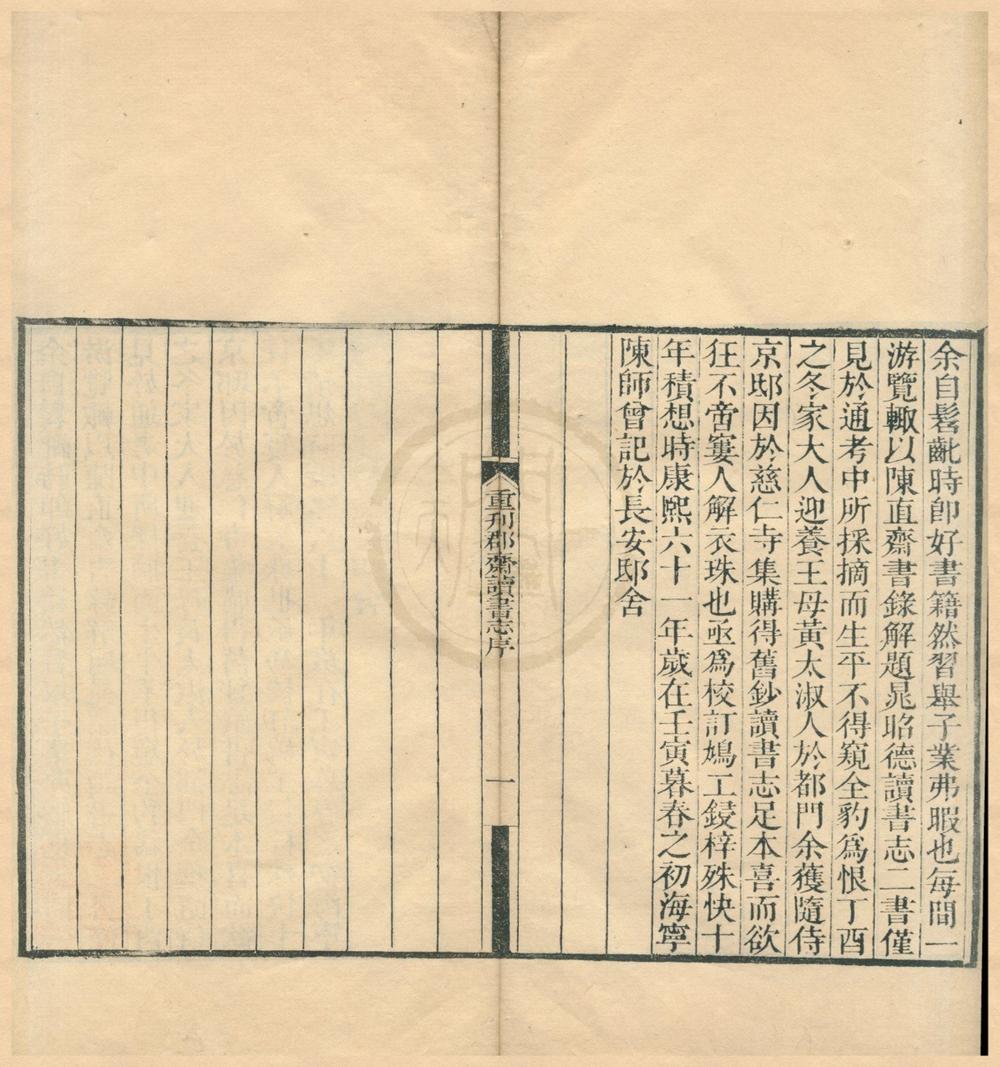 余自髫齔時卽好書籍然習舉子業弗暇也每間一
游覽輙以陳直齋書錄解題晁昭德讀書志二書僅
見於通考中所採摘而生平不得窺全豹爲恨丁酉
之冬家大人迎養王母黃太淑人於都門余獲隨侍
京邸因於慈仁寺集購得舊鈔讀書志足本喜而欲
狂不啻窶人解衣珠也亟爲校訂鳩工鋟梓殊快十
年積想時康熙六十一年歲在壬寅暮春之初海寧
陳師曾記於長安邸舍
重刋郡齋讀書志序
一